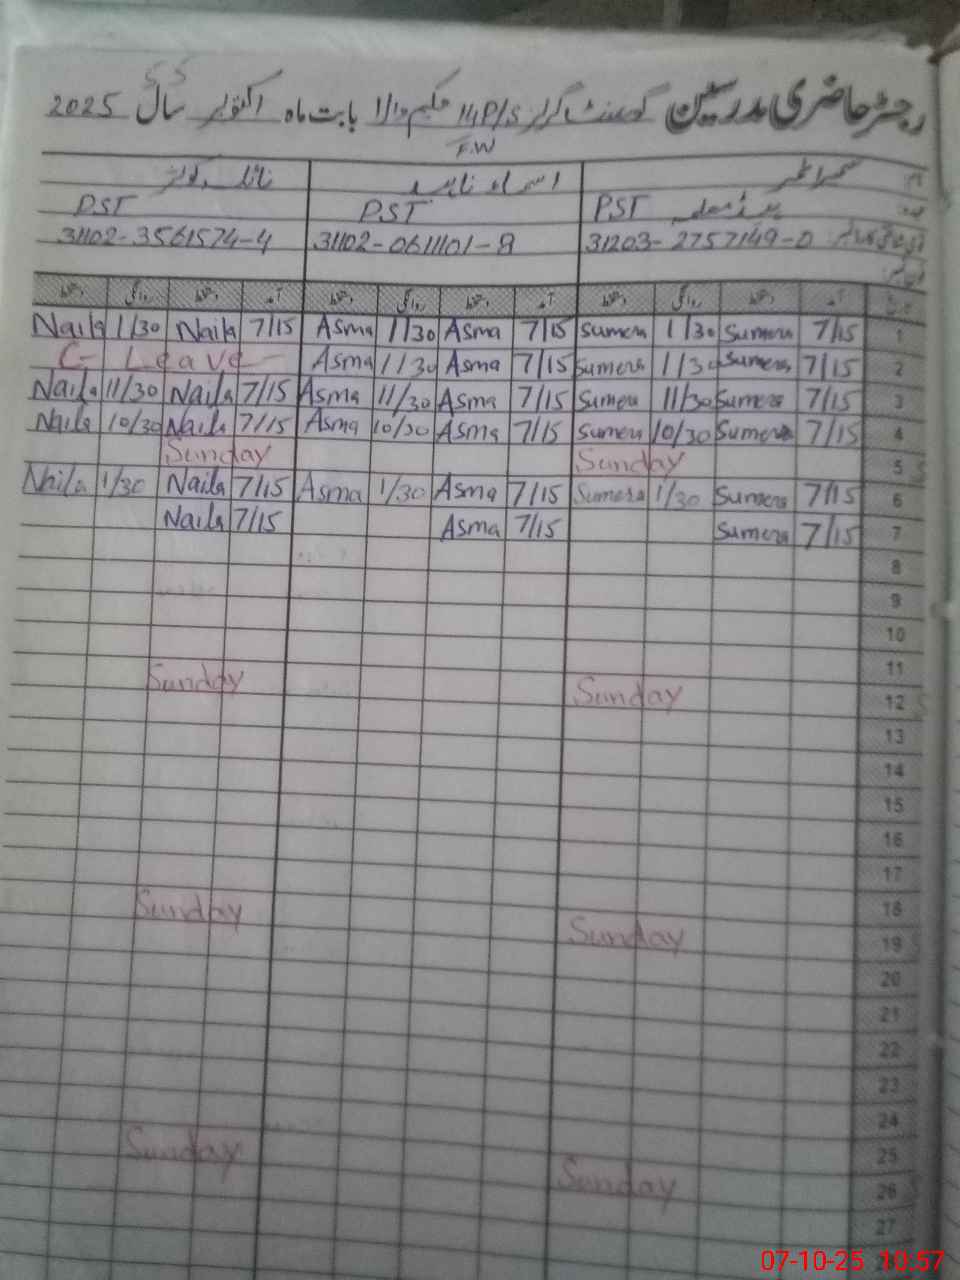 رجسٹر حاضری مدرسین گورنمنٹ گرلز H/P/S حکیم والا بابت ماہ اکتوبر سال 2025
F.W
PST PST PST
31203-2757149-0 31102-0611101-8 31102-3561574-4
آمد دستخط روانگی دستخط آمد دستخط روانگی دستخط آمد دستخط روانگی دستخط
Naila 1/30 Naila 7/15 Asma 1/30 Asma 7/15 Sumera 1/30 Sumera 7/15 1
C- Leave Asma 1/30 Asma 7/15 Sumera 1/30 Sumera 7/15 2
Naila 11/30 Naila 7/15 Asma 11/30 Asma 7/15 Sumera 11/30 Sumera 7/15 3
Naila 10/30 Naila 7/15 Asma 10/30 Asma 7/15 Sumera 10/30 Sumera 7/15 4
Sunday Sunday 5
Naila 1/30 Naila 7/15 Asma 1/30 Asma 7/15 Sumera 1/30 Sumera 7/15 6
Naila 7/15 Asma 7/15 Sumera 7/15 7
8
9
10
11
Sunday Sunday 12
13
14
15
16
17
18
Sunday Sunday 19
20
21
22
23
24
25
Sunday Sunday 26
27
07-10-25 10:57